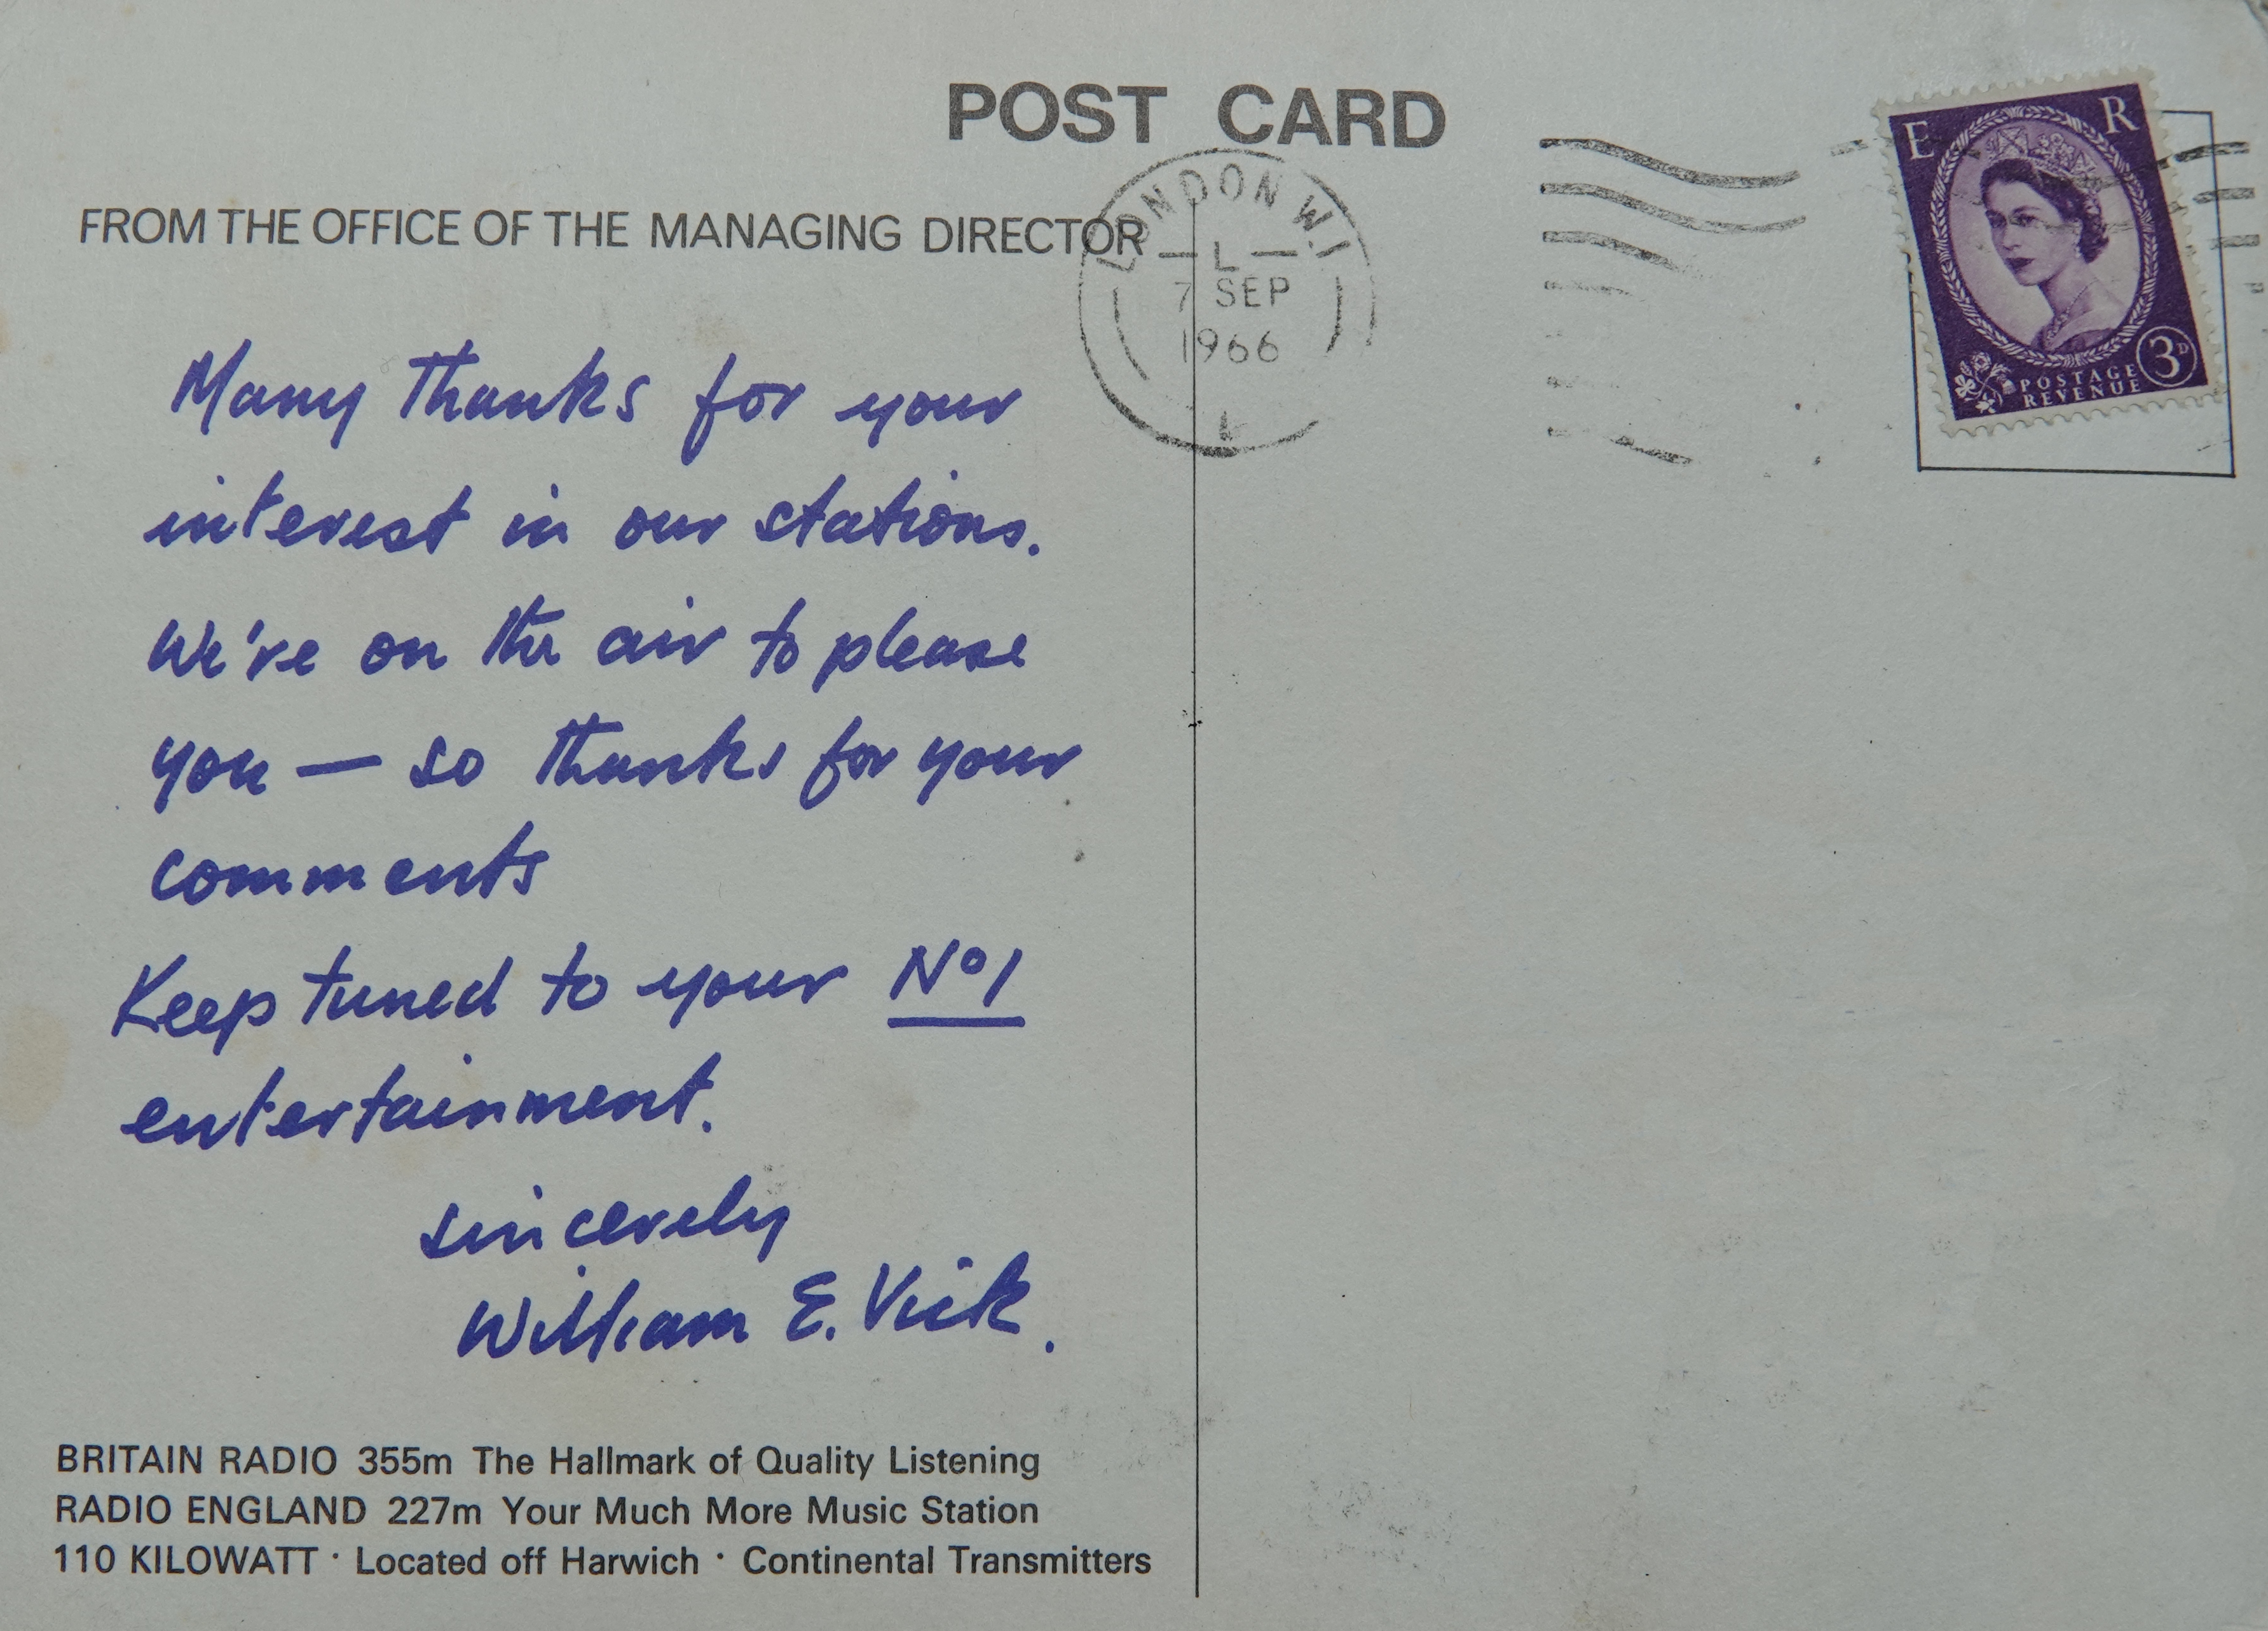 POST CARD
FROM THE OFFICE OF THE MANAGING DIRECTOR
LONDON W.1
L
7 SEP
1966
E R
3D
POSTAGE
REVENUE
Many thanks for your
interest in our stations.
We've on the air to please
you — so thanks for your
comments
Keep tuned to your Nº1
entertainment.
sincerely
William E. Vick.
BRITAIN RADIO 355m The Hallmark of Quality Listening
RADIO ENGLAND 227m Your Much More Music Station
110 KILOWATT · Located off Harwich · Continental Transmitters